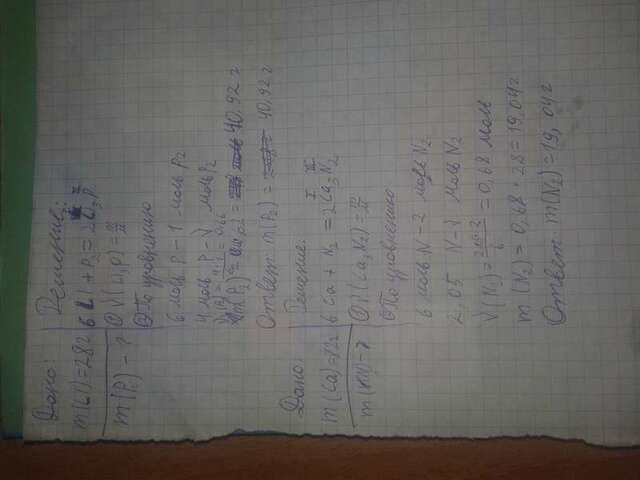 Дано:
Решение:
m(Li)=28г
6Li + P2 = 2Li3P
m(P2) - ?
① ν(Li3P) = m/M
② По уравнению
6 моль P - 1 моль P2
4 моль P - ν моль P2
= 0,66
m(P2) = 40,92 г
Ответ: m(P2) = 40,92 г
Дано:
Решение:
m(Ca)=82г
6 Ca + N2 = 2Ca3N2
① ν(Ca3N2) = m/M
② По уравнению
6 моль N - 2 моль N2
2,05 N - ν моль N2
ν(N2) = 2,05·2/6 = 0,68 моль
m(N2) = 0,68 · 28 = 19,04г
Ответ: m(N2) = 19,04г